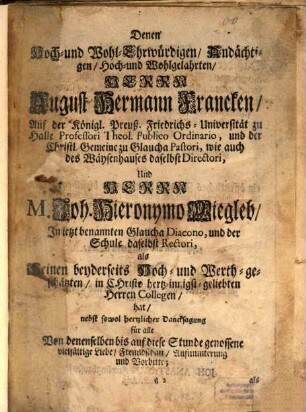 Denen
Hoch-und Wohl-Ehrwürdigen/ Andächti-
gen/ Hoch-und Wohlgelahrten/
HERRN
August Hermann Francken/
Auf der Königl. Preuß. Friedrichs-Universität zu
Halle Professori Theol. Publico Ordinario, und der
Christl. Gemeine zu Glaucha Pastori, wie auch
des Wäysenhauses daselbst Directori,
Und
HERRN
M. Joh. Hieronymo Wiegleb/
In jetzt benannten Glaucha Diacono, und der
Schule daselbst Rectori,
als
Seinen beyderseits Hoch- und Werth-ge-
schätzten/ in Christo hertz-innigst-geliebten
Herren Collegen/
hat/
nebst sowol hertzlicher Dancksagung
für alle
Von denenselben bis auf diese Stunde genossene
vielfältige Liebe/ Freundschaft/ Aufmunterung
und Vorbitte;
als